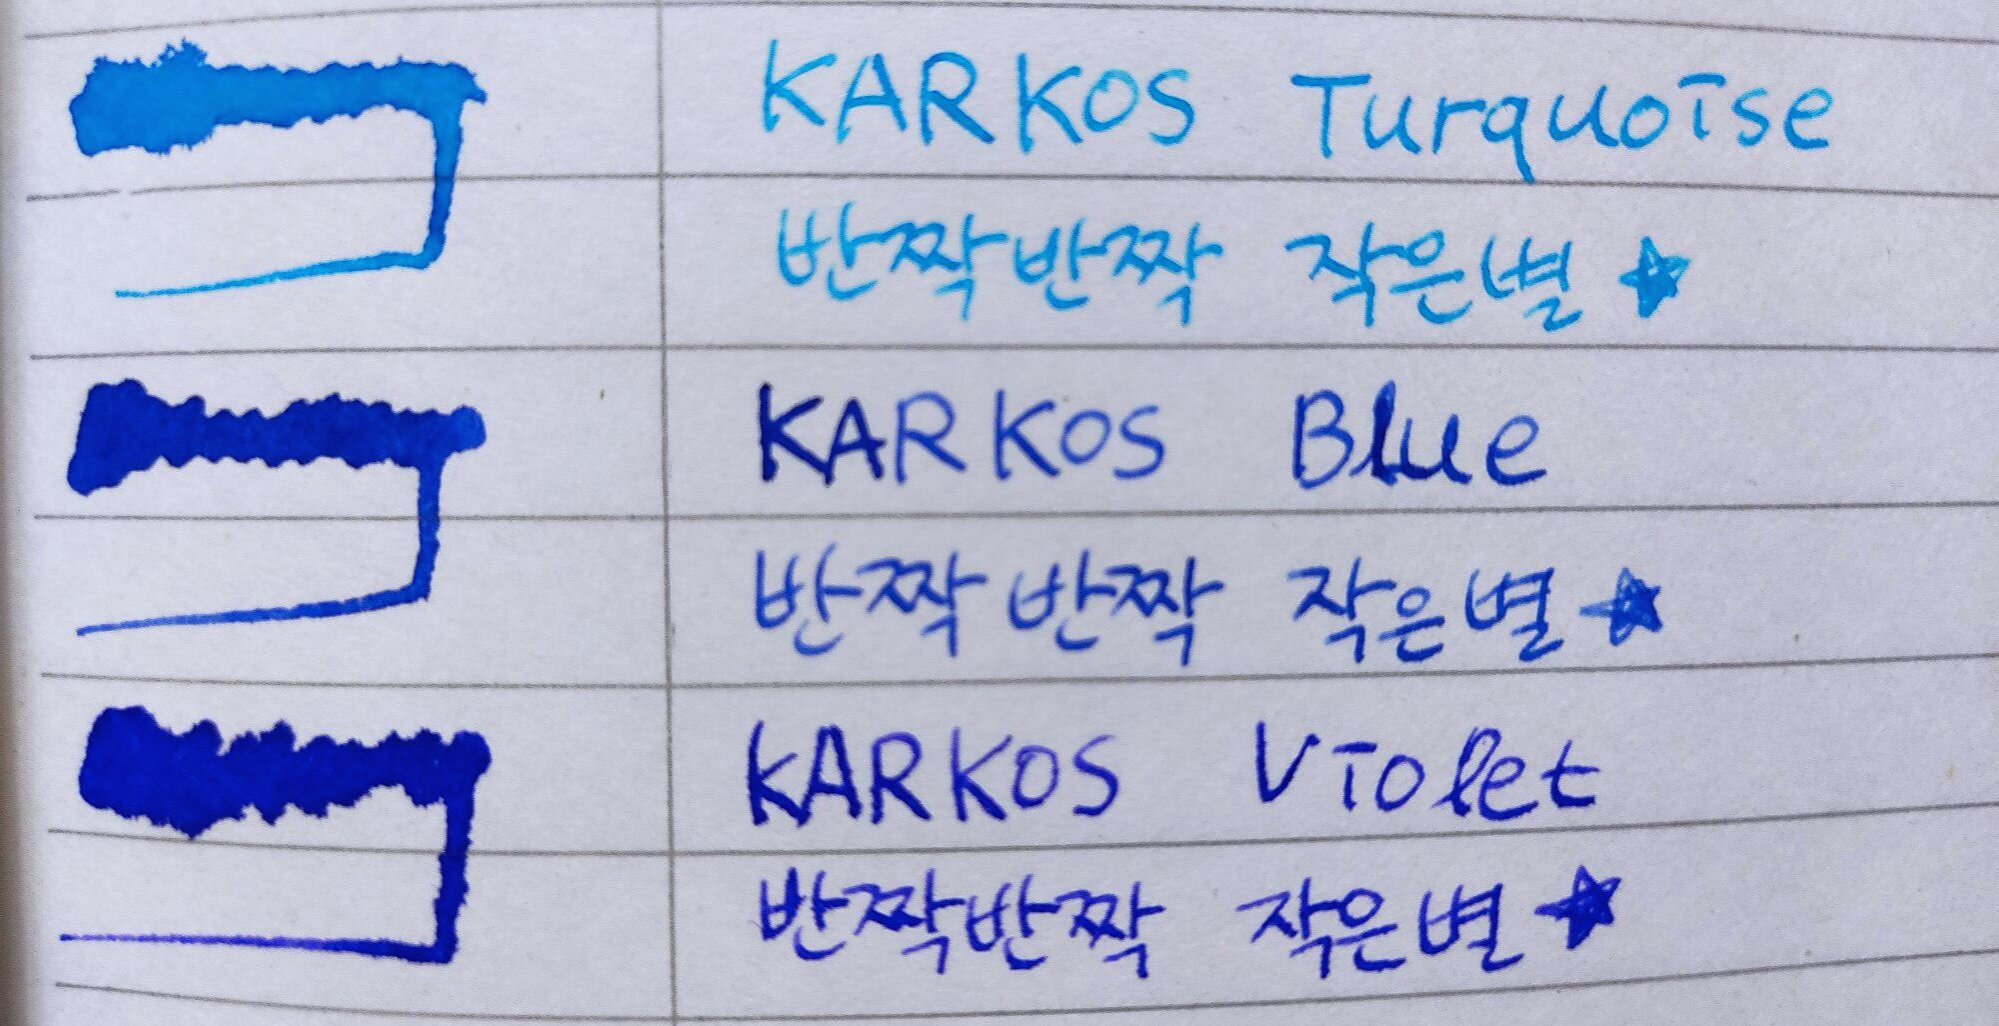 KARKOS Turquoise
반짝반짝 작은별 ★
KARKOS Blue
반짝반짝 작은별 ★
KARKOS Violet
반짝반짝 작은별 ★